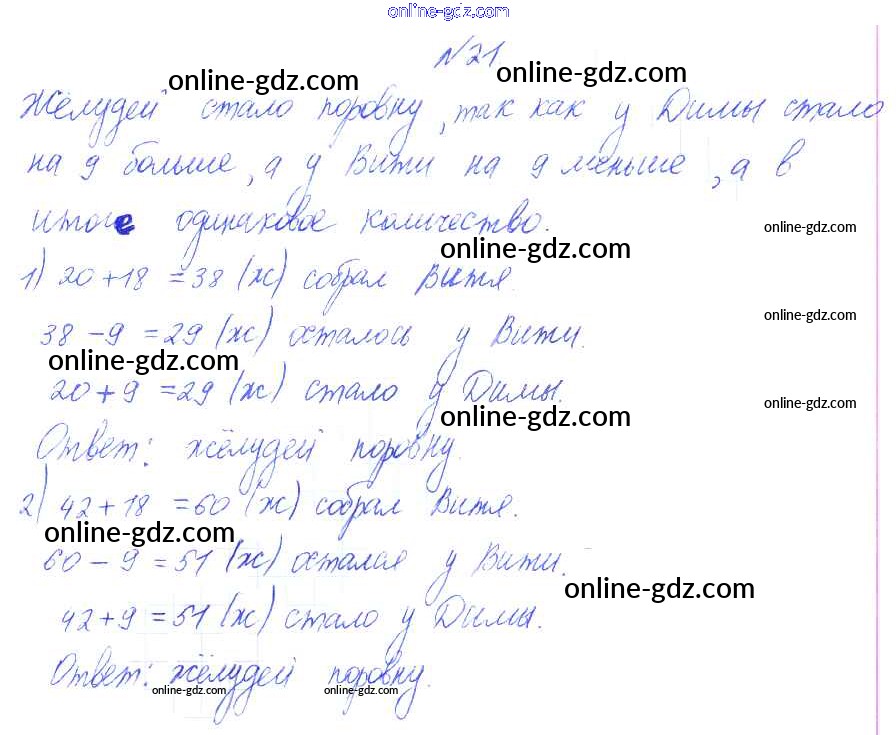 online-gdz.com
№21
online-gdz.com online-gdz.com
Жёлудей стало поровну, так как у Димы стало
на 9 больше, а у Вити на 9 меньше, а в
итоге одинаковое количество.
online-gdz.com
online-gdz.com
1) 20+18 =38 (ж) собрал Витя.
online-gdz.com
38-9 =29 (ж) осталось у Вити.
online-gdz.com
20+9 =29 (ж) стало у Димы.
online-gdz.com
online-gdz.com
Ответ: жёлудей поровну.
2) 42+18 =60 (ж) собрал Витя.
online-gdz.com
60-9=51 (ж) остался у Вити.
online-gdz.com
42+9=51 (ж) стало у Димы.
Ответ: жёлудей поровну.
online-gdz.com online-gdz.com